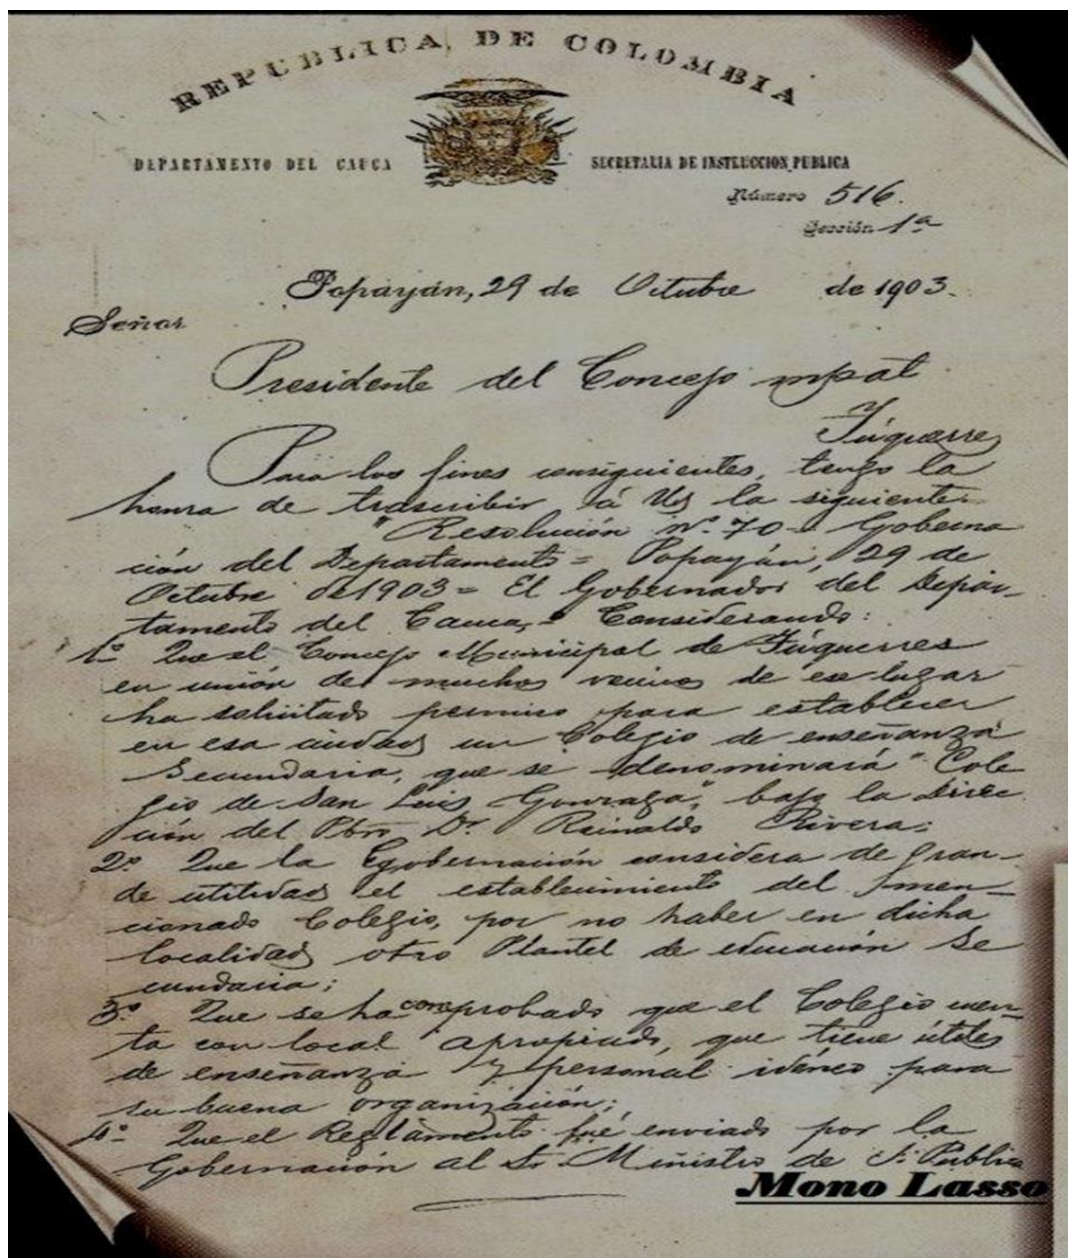 REPUBLICA DE COLOMBIA
DEPARTAMENTO DEL CAUCA SECRETARIA DE INSTRUCCION PUBLICA
Número 516.
Sección 1ª
Popayán, 29 de Octubre de 1903.
Señor
Presidente del Concejo mpal
Túquerres
Para los fines consiguientes, tengo la
honra de trascribir á Ud la siguiente
"Resolución Nº 70 - Goberna
ción del Departamento = Popayán, 29 de
Octubre de 1903 = El Gobernador del Depar-
tamento del Cauca, = Considerando:
1º Que el Concejo Municipal de Túquerres
en unión de muchos vecinos de ese lugar
ha solicitado permiso para establecer
en esa ciudad un Colegio de enseñanza
Secundaria, que se denominará "Cole
gio de San Luis Gonzaga", bajo la Direc
ción del Pbro Dr Reinaldo Rivera;
2º Que la Gobernación considera de gran-
de utilidad el establecimiento del men-
cionado Colegio, por no haber en dicha
localidad otro Plantel de educación Se
cundaria;
3º Que se ha comprobado que el Colegio cuen-
ta con local apropiado, que tiene útiles
de enseñanza y personal idóneo para
su buena organización;
4º Que el Reglamento fué enviado por la
Gobernación al Sr Ministro de I. Publica
Mono Lasso